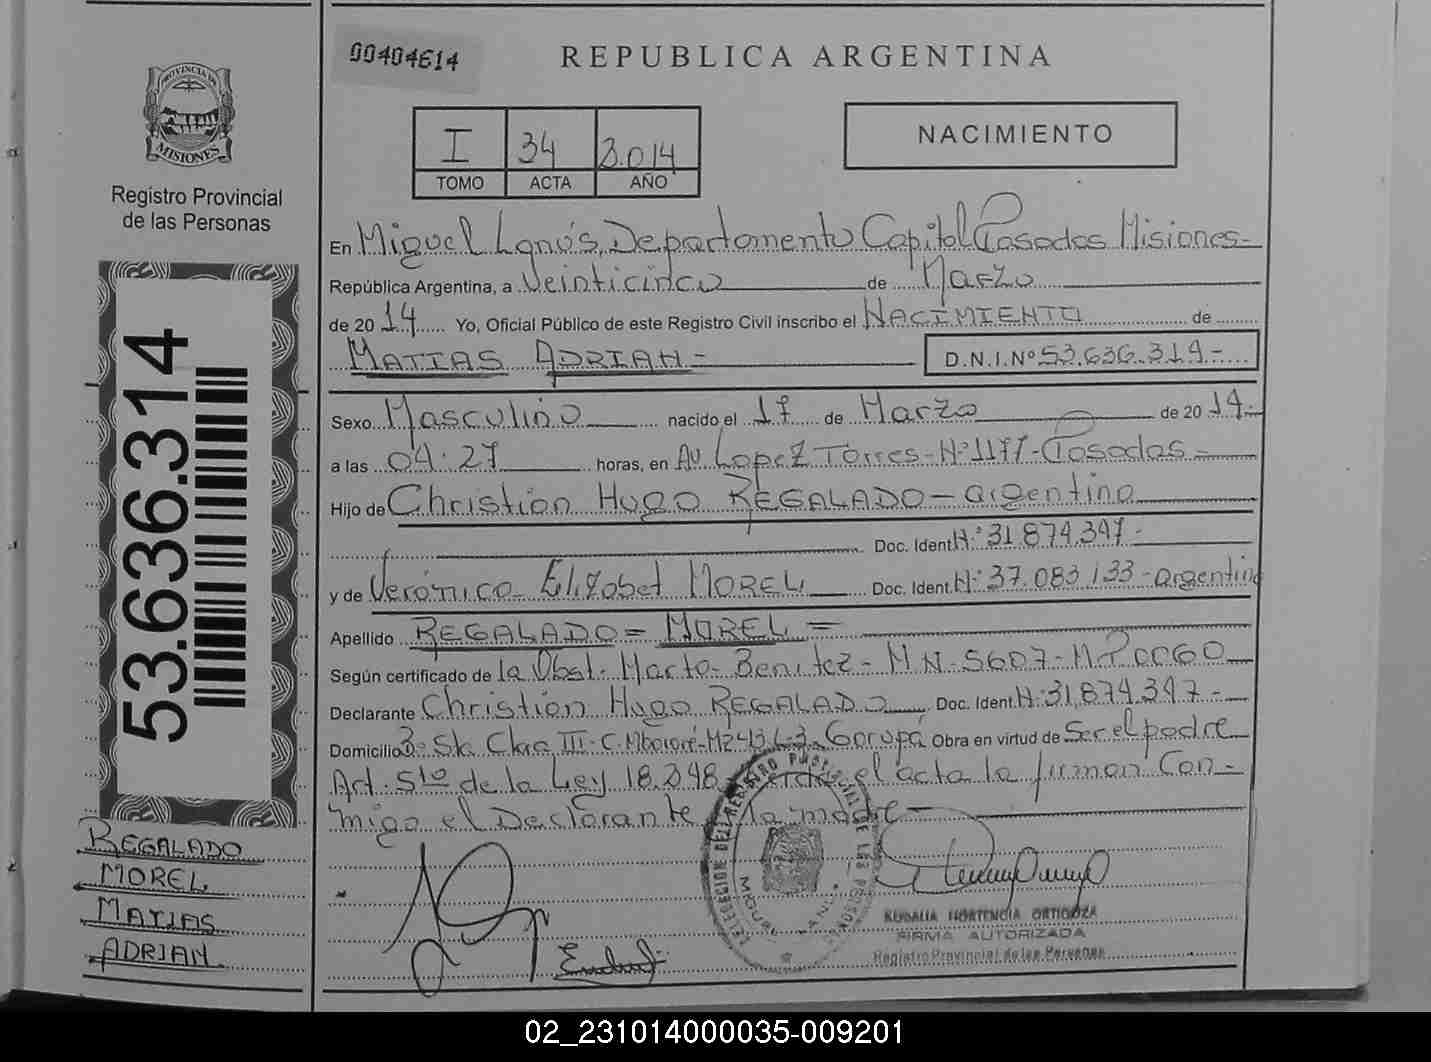 00404614
REPUBLICA ARGENTINA
PROVINCIA DE
MISIONES
Registro Provincial
de las Personas
I 34 2.014
TOMO ACTA AÑO
NACIMIENTO
En Miguel Lanús, Departamento Capital Posadas Misiones-
República Argentina, a Veinticinco de Marzo
de 2014 Yo, Oficial Público de este Registro Civil inscribo el NACIMIENTO de
MATIAS ADRIAN- D.N.I.Nº 53.636.314-
Sexo Masculino nacido el 17 de Marzo de 2014-
a las 04:27 horas, en Av. Lopez Torres-Nº1177-Posadas-
Hijo de Christian Hugo REGALADO-argentino
Doc. Ident Nº 31.874.347-
y de Verónica Elizabet MOREL Doc. Ident. Nº 37.083.133-argentina
Apellido REGALADO= MOREL=
Según certificado de la Obst. Marta Benitez-M.N.5607-M.P.
Declarante Christian Hugo REGALADO Doc. Ident. Nº 31.874.347-
Domicilio Bº Sta Clara III-C. Garupá Obra en virtud de Ser el padre
Art. 5to de la Ley 18.248 el acta la firman Con-
migo el Declarante la madre-
53.636.314
REGALADO
MOREL
MATIAS
ADRIAN
HORTENCIA ORTIGOZA
FIRMA AUTORIZADA
Registro Provincial de las Personas
02_231014000035-009201